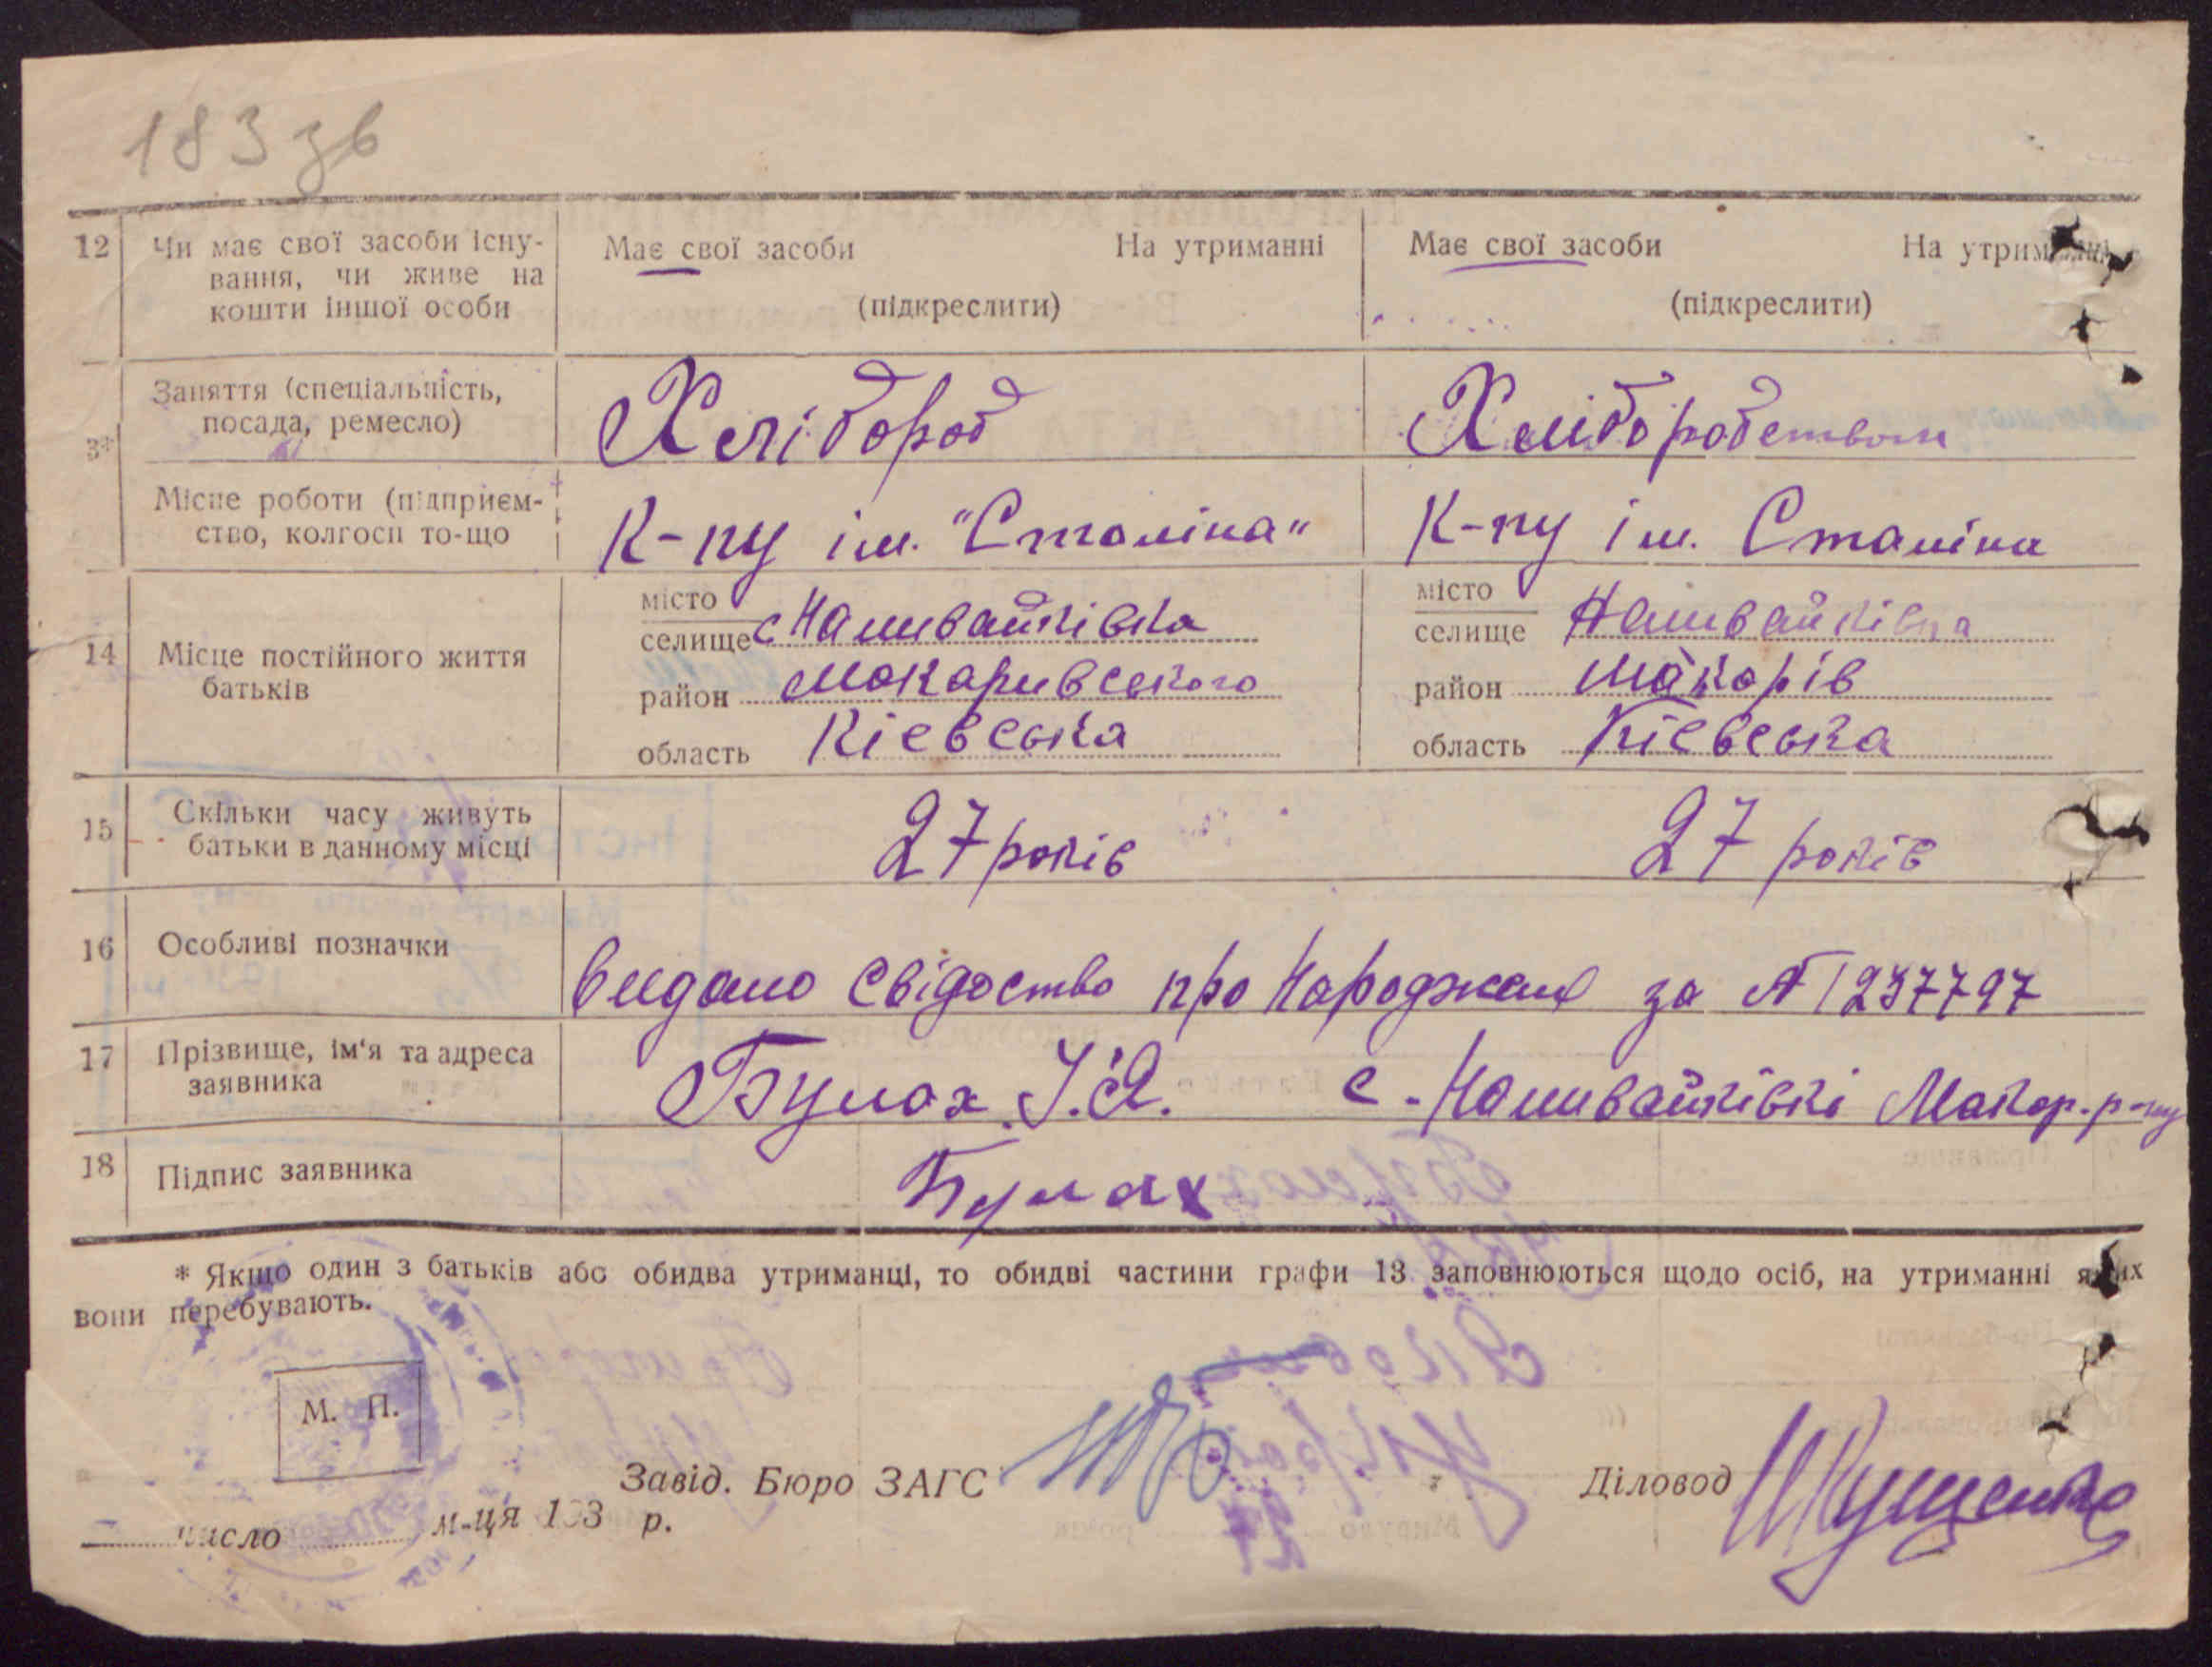 183 зв
12 Чи має свої засоби існу- Має свої засоби На утриманні Має свої засоби На утриманні
вання, чи живе на
кошти іншої особи (підкреслити) (підкреслити)
Заняття (спеціальність,
посада, ремесло) Хлібороб Хліборобством
3*
Місце роботи (підприєм-
ство, колгосп то-що К-пу ім. "Сталіна" К-пу ім. Сталіна
місто місто
селище с Наливайківка селище Наливайківка
14 Місце постійного життя
батьків район Макаривського район Макарів
область Кієвська область Кієвська
15 Скільки часу живуть
батьки в данному місці 27 років 27 років
16 Особливі позначки видано свідоство про Народжен за № 1237797
17 Прізвище, ім'я та адреса
заявника Булах І. Я. с. Наливайківкі Макар. р-ну
18 Підпис заявника Булах
* Якщо один з батьків або обидва утриманці, то обидві частини графи 13 заповнюються щодо осіб, на утриманні яких
вони перебувають.
М. П.
Завід. Бюро ЗАГС Діловод
число м-ця 193 р.